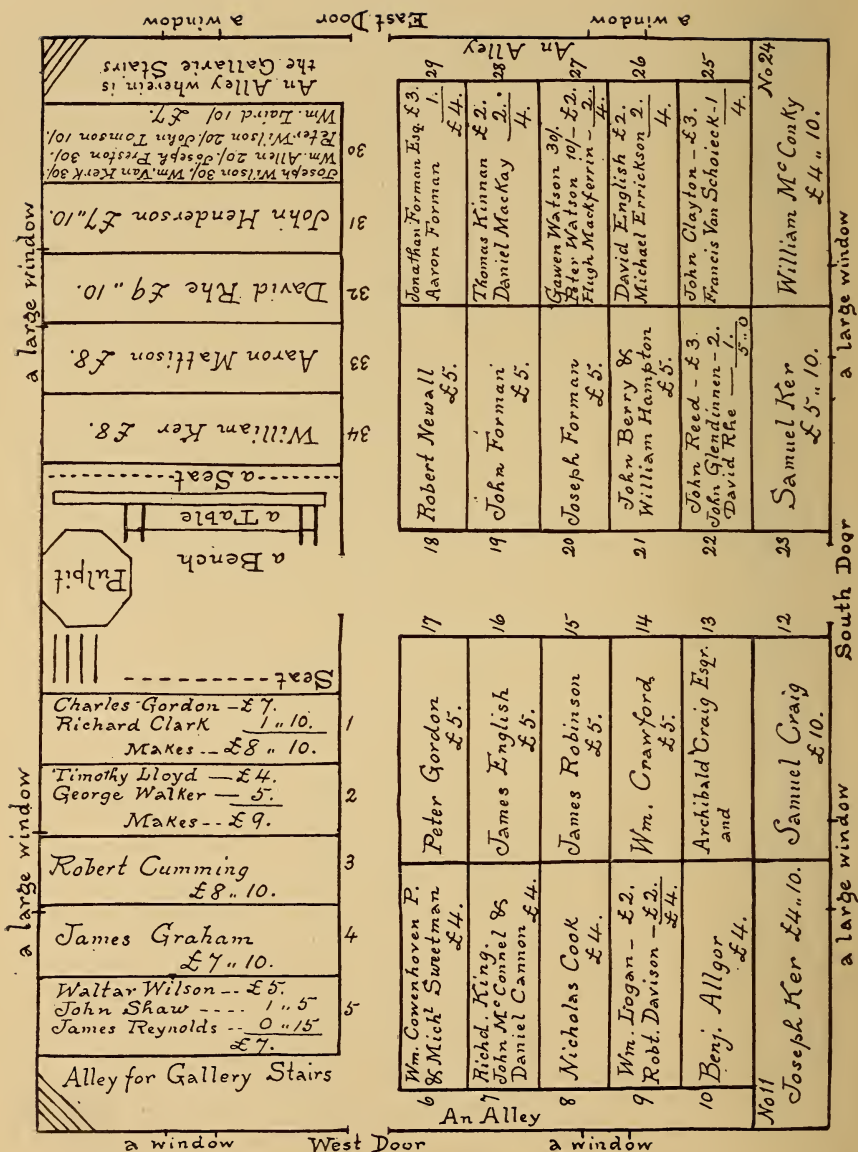 a window
East Door
a window
An Alley wherein is
the Gallarie Stairs
30
Joseph Wilson 30/ Wm. Van Kerk 30/
Wm. Allen 20/ Joseph Preston 30/.
Peter Wilson 20/ John Tomson 10/.
Wm. Laird 10/ £7.
31
John Henderson £7,,10.
32
David Rhe £9,,10.
33
Aaron Mattison £8.
34
William Ker £8.
a Seat
a Table
a Bench
Pulpit
Seat
a large window
Charles Gordon - £7.
Richard Clark 1,,10.
Makes -- £8,,10.
1
Timothy Lloyd — £4.
George Walker — 5.
Makes -- £9.
2
Robert Cumming
£8,,10.
3
James Graham
£7,,10.
4
Waltar Wilson -- £5.
John Shaw ---- 1,,5
James Reynolds -- 0,,15
£7.
5
Alley for Gallery Stairs
a large window
An Alley
29
Jonathan Forman Esq. £3.
Aaron Forman 1.
£4.
28
Thomas Kinnan £2.
Daniel MacKay 2.
4.
27
Gawen Watson 30/
Peter Watson 10/- £2.
Hugh Mackferrin - 2.
4.
26
David English £2.
Michael Errickson 2.
4.
25
John Clayton - £3.
Francis Van Schoieck - 1
4.
No 24
William McConky
£4,,10.
18
Robert Newall
£5.
19
John Forman
£5.
20
Joseph Forman
£5.
21
John Berry &
William Hampton
£5.
22
John Reed - £3.
John Glendinnen - 2.
David Rhe — 1.
5,,0
23
Samuel Ker
£5,,10.
a large window
South Door
17
Peter Gordon
£5.
16
James English
£5.
15
James Robinson
£5.
14
Wm. Crawford
£5.
13
Archibald Craig Esqr.
and
12
Samuel Craig
£10.
6
Wm. Cowenhoven P.
& Michl Sweetman
£4.
7
Richd. King.
John McConnel &
Daniel Cannon £4.
8
Nicholas Cook
£4.
9
Wm. Logan - £2.
Robt. Davison - £2.
£4.
10
Benj. Allgor
£4.
No 11
Joseph Ker £4,,10.
a large window
An Alley
a window
West Door
a window